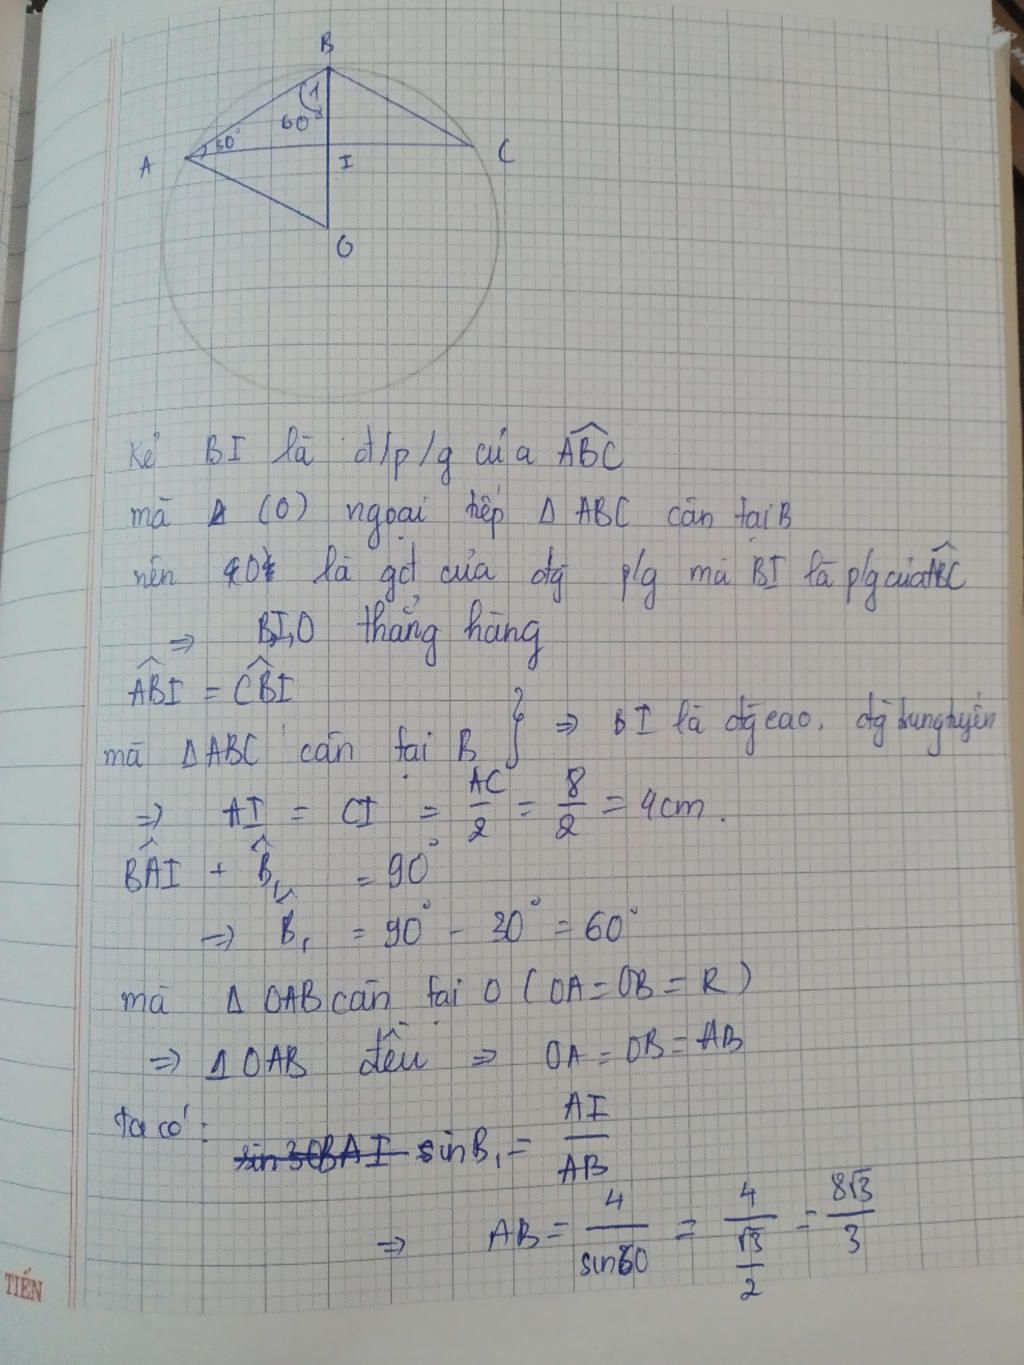 B
1
60°
30°
A
I
C
O
Kẻ BI là đ/p/g của ABC
mà (O) ngoại tiếp Δ ABC cân tại B
nên O là gđ của đg p/g mà BI là p/g của ABC
⇒ B,I,O thẳng hàng
ABI = CBI
mà ΔABC cân tại B } ⇒ BI là đg cao, đg trung tuyến
⇒ AI = CI = AC/2 = 8/2 = 4cm.
BAI + B₁ = 90°
⇒ B₁ = 90° - 30° = 60°
mà Δ OAB cân tại O (OA = OB = R)
⇒ Δ OAB đều ⇒ OA = OB = AB
Ta có: sin B₁ = AI/AB
⇒ AB = 4/sin60 = 4/(√3/2) = 8√3/3
TIẾN